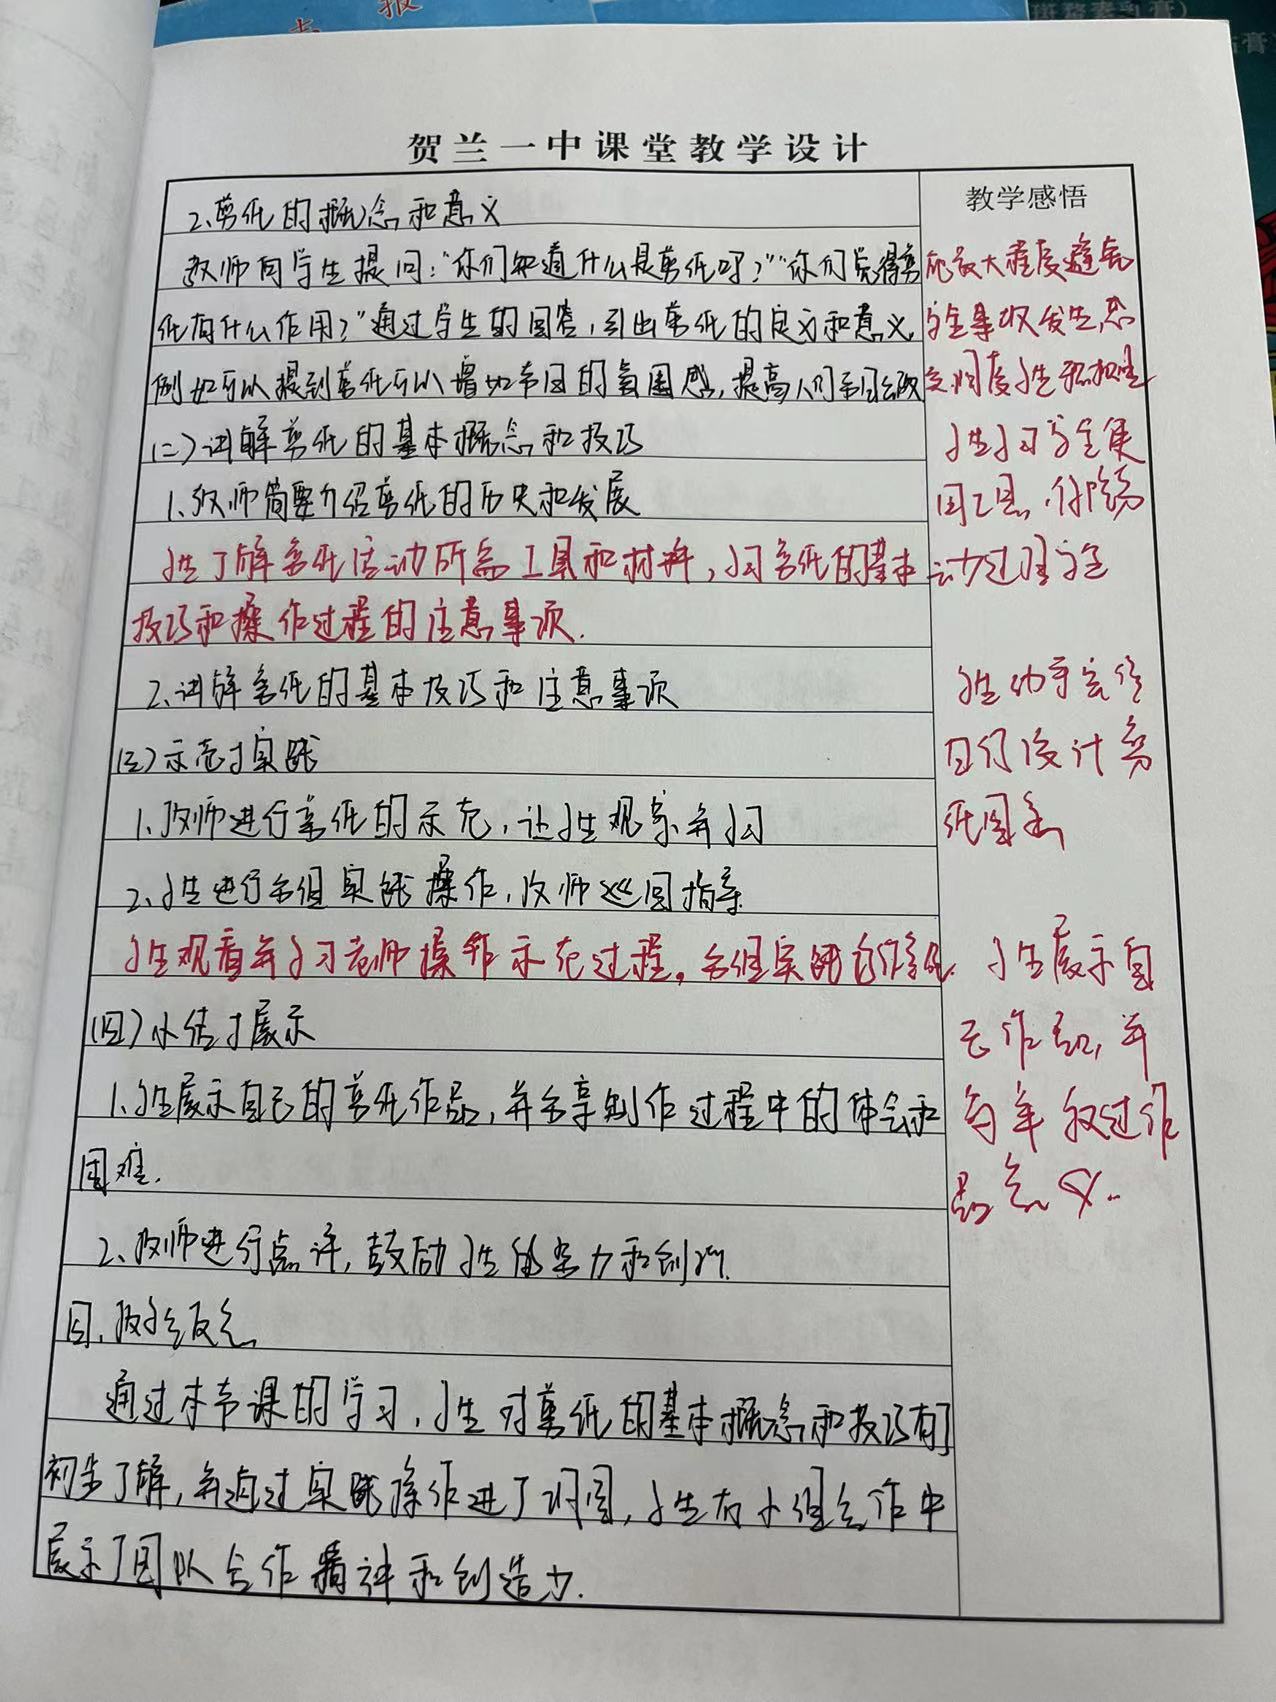 贺兰一中课堂教学设计
教学感悟
2.剪纸的概念和意义
教师向学生提问:“你们知道什么是剪纸吗?”“你们觉得剪
纸有什么作用?”通过学生的回答,引出剪纸的定义和意义,
例如可以提到剪纸可以增加节日的氛围感,提高人们
(二)讲解剪纸的基本概念和技巧
1、教师简要介绍剪纸的历史和发展
学生了解剪纸活动所需工具和材料,学习剪纸的基本
技巧和操作过程的注意事项.
2、讲解剪纸的基本技巧和注意事项
(三)示范与实践
1、教师进行剪纸的示范,让学生观察并学习
2、学生进行分组实践操作,教师巡回指导
学生观看并学习老师操作示范过程,分组实践
(四)小结与展示
1、学生展示自己的剪纸作品,并分享制作过程中的体会和
困难.
2、教师进行点评,鼓励学生的努力和创作.
四、教学反思
通过本节课的学习,学生对剪纸的基本概念和技巧有了
初步了解,并通过实践操作进了巩固,学生在小组合作中
展示了团队合作精神和创造力.
最大程度避免
安全事故发生,
学生积极性
学生学习安全使
用工具,
动过程安全
学生动手实作
自行设计剪
纸图案
学生展示自
己作品,并
作
品意义.